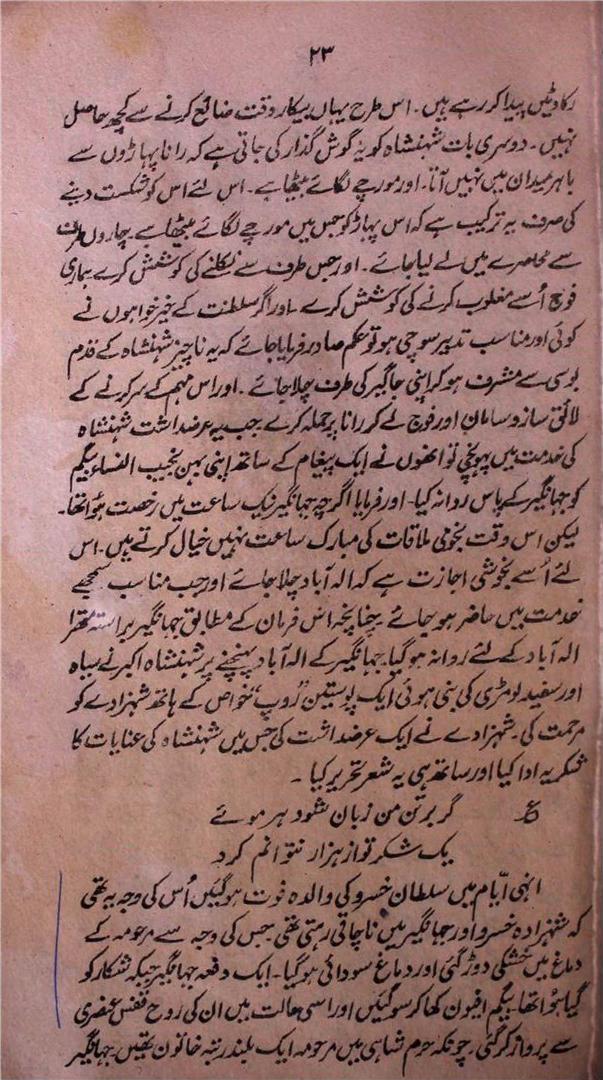 ۲۳
رکاوٹیں پیدا کر رہے ہیں۔ اس طرح یہاں بیکار وقت ضائع کرنے سے کچھ حاصل
نہیں۔ دوسری بات شہنشاہ کو یہ گوش گذار کی جاتی ہے کہ رانا پہاڑوں سے
باہر میدان میں نہیں آتا۔ اور مورچے لگائے بیٹھا ہے۔ اس لئے اس کو شکست دینے
کی صرف یہ ترکیب ہے کہ اس پہاڑ کو جس میں مورچے لگائے بیٹھا ہے۔ چاروں طرف
سے محاصرے میں لے لیا جائے۔ اور جس طرف سے نکلنے کی کوشش کرے ہماری
فوج اُسے مغلوب کرنے کی کوشش کرے۔ اور اگر سلطنت کے خیرخواہوں نے
کوئی اور مناسب تدبیر سوچی ہو تو حکم صادر فرمایا جائے کہ یہ ناچیز شہنشاہ کے قدم
بوسی سے مشرف ہو کر اپنی جاگیر کی طرف چلا جائے۔ اور اس مہم کے سر کرنے کے
لائق ساز و سامان اور فوج لے کر رانا پر حملہ کرے۔ جب یہ عرضداشت شہنشاہ
کی خدمت میں پہونچی تو انھوں نے ایک پیغام کے ساتھ اپنی بہن نجیب النساء بیگم
کو جہانگیر کے پاس روانہ کیا۔ اور فرمایا اگرچہ جہانگیر نیک ساعت میں رخصت ہوا تھا۔
لیکن اس وقت نجومی ملاقات کی مبارک ساعت نہیں خیال کرتے ہیں۔ اس
لئے اُسے بخوشی اجازت ہے کہ الہ آباد چلا جائے اور جب مناسب سمجھے
خدمت میں حاضر ہو جائے۔ چنانچہ اس فرمان کے مطابق جہانگیر براستہ متھرا
الہ آباد کے لئے روانہ ہو گیا۔ جہانگیر کے الہ آباد پہنچنے پر شہنشاہ اکبر نے سیاہ
اور سفید لومڑی کی بنی ہوئی ایک پوستین "روپ" خواص کے ہاتھ شہزادے کو
مرحمت کی۔ شہزادے نے ایک عرضداشت کی جس میں شہنشاہ کی عنایات کا
شکریہ ادا کیا اور ساتھ ہی یہ شعر تحریر کیا۔
گر برتن من زبان شود ہر موئے
یک شکر تو از ہزار نتوانم کرد
انہی ایّام میں سلطان خسرو کی والدہ فوت ہو گئیں اُس کی وجہ یہ تھی
کہ شہزادہ خسرو اور جہانگیر میں ناچاقی رہتی تھی۔ جس کی وجہ سے مرحومہ کے
دماغ میں خشکی دوڑ گئی اور دماغ سودائی ہو گیا۔ ایک دفعہ جہانگیر جبکہ شکار کو
گیا ہوا تھا۔ بیگم افیون کھا کر سو گئیں اور اسی حالت میں ان کی روح قفس عنصری
سے پرواز کر گئی۔ چونکہ حرم شاہی میں مرحومہ ایک بلند رتبہ خاتون تھیں۔ جہانگیر